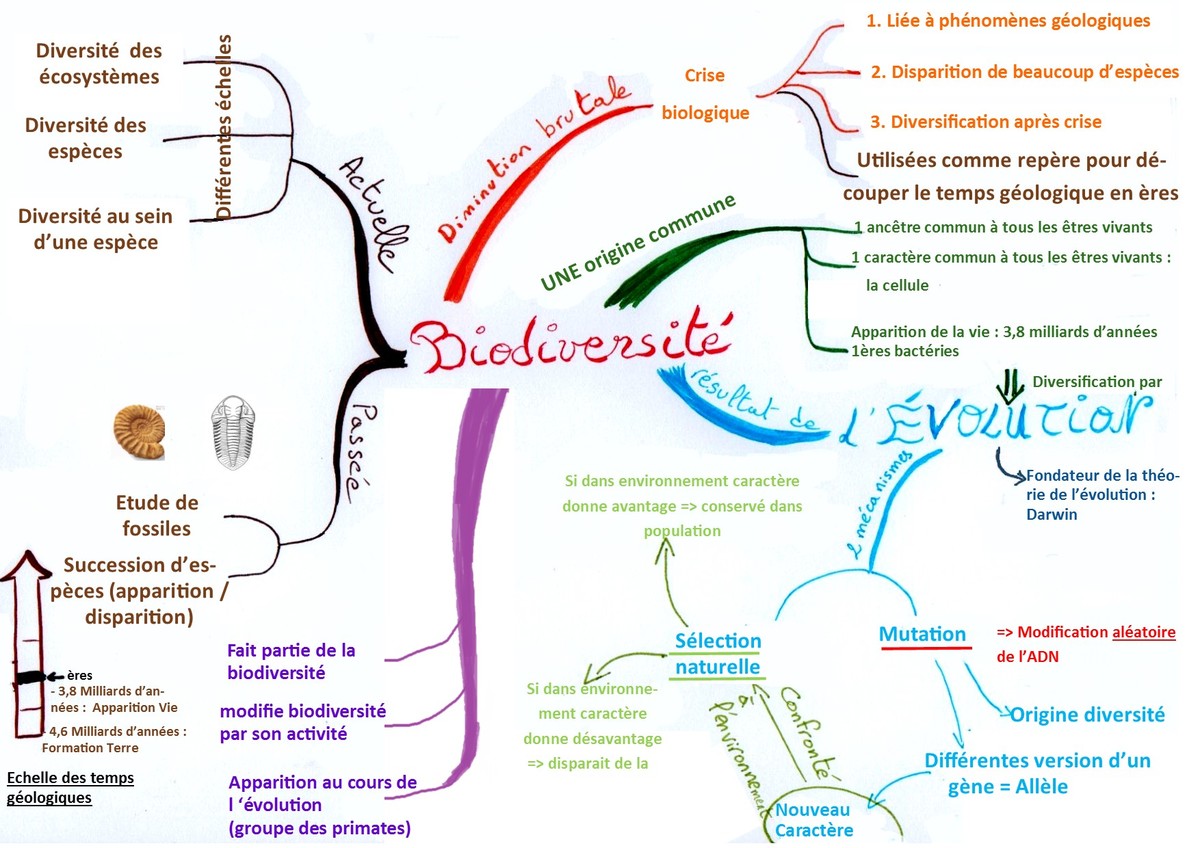 Diversité des
écosystèmes
Diversité des
espèces
Diversité au sein
d'une espèce
Différentes échelles
Actuelle
Diminution brutale
Crise
biologique
1. Liée à phénomènes géologiques
2. Disparition de beaucoup d'espèces
3. Diversification après crise
Utilisées comme repère pour dé-
couper le temps géologique en ères
UNE origine commune
1 ancêtre commun à tous les êtres vivants
1 caractère commun à tous les êtres vivants :
la cellule
Apparition de la vie : 3,8 milliards d'années
1ères bactéries
Biodiversité
résultat de
Diversification par
l'ÉVOLUTION
Fondateur de la théo-
rie de l'évolution :
Darwin
2 mécanismes
Passée
Etude de
fossiles
Succession d'es-
pèces (apparition /
disparition)
ères
- 3,8 Milliards d'an-
nées : Apparition Vie
- 4,6 Milliards d'années :
Formation Terre
Echelle des temps
géologiques
Fait partie de la
biodiversité
modifie biodiversité
par son activité
Apparition au cours de
l 'évolution
(groupe des primates)
Si dans environnement caractère
donne avantage => conservé dans
population
Sélection
naturelle
Si dans environne-
ment caractère
donne désavantage
=> disparait de la
Mutation
=> Modification aléatoire
de l'ADN
Origine diversité
Différentes version d'un
gène = Allèle
Confronté
à
l'environnement
Nouveau
Caractère